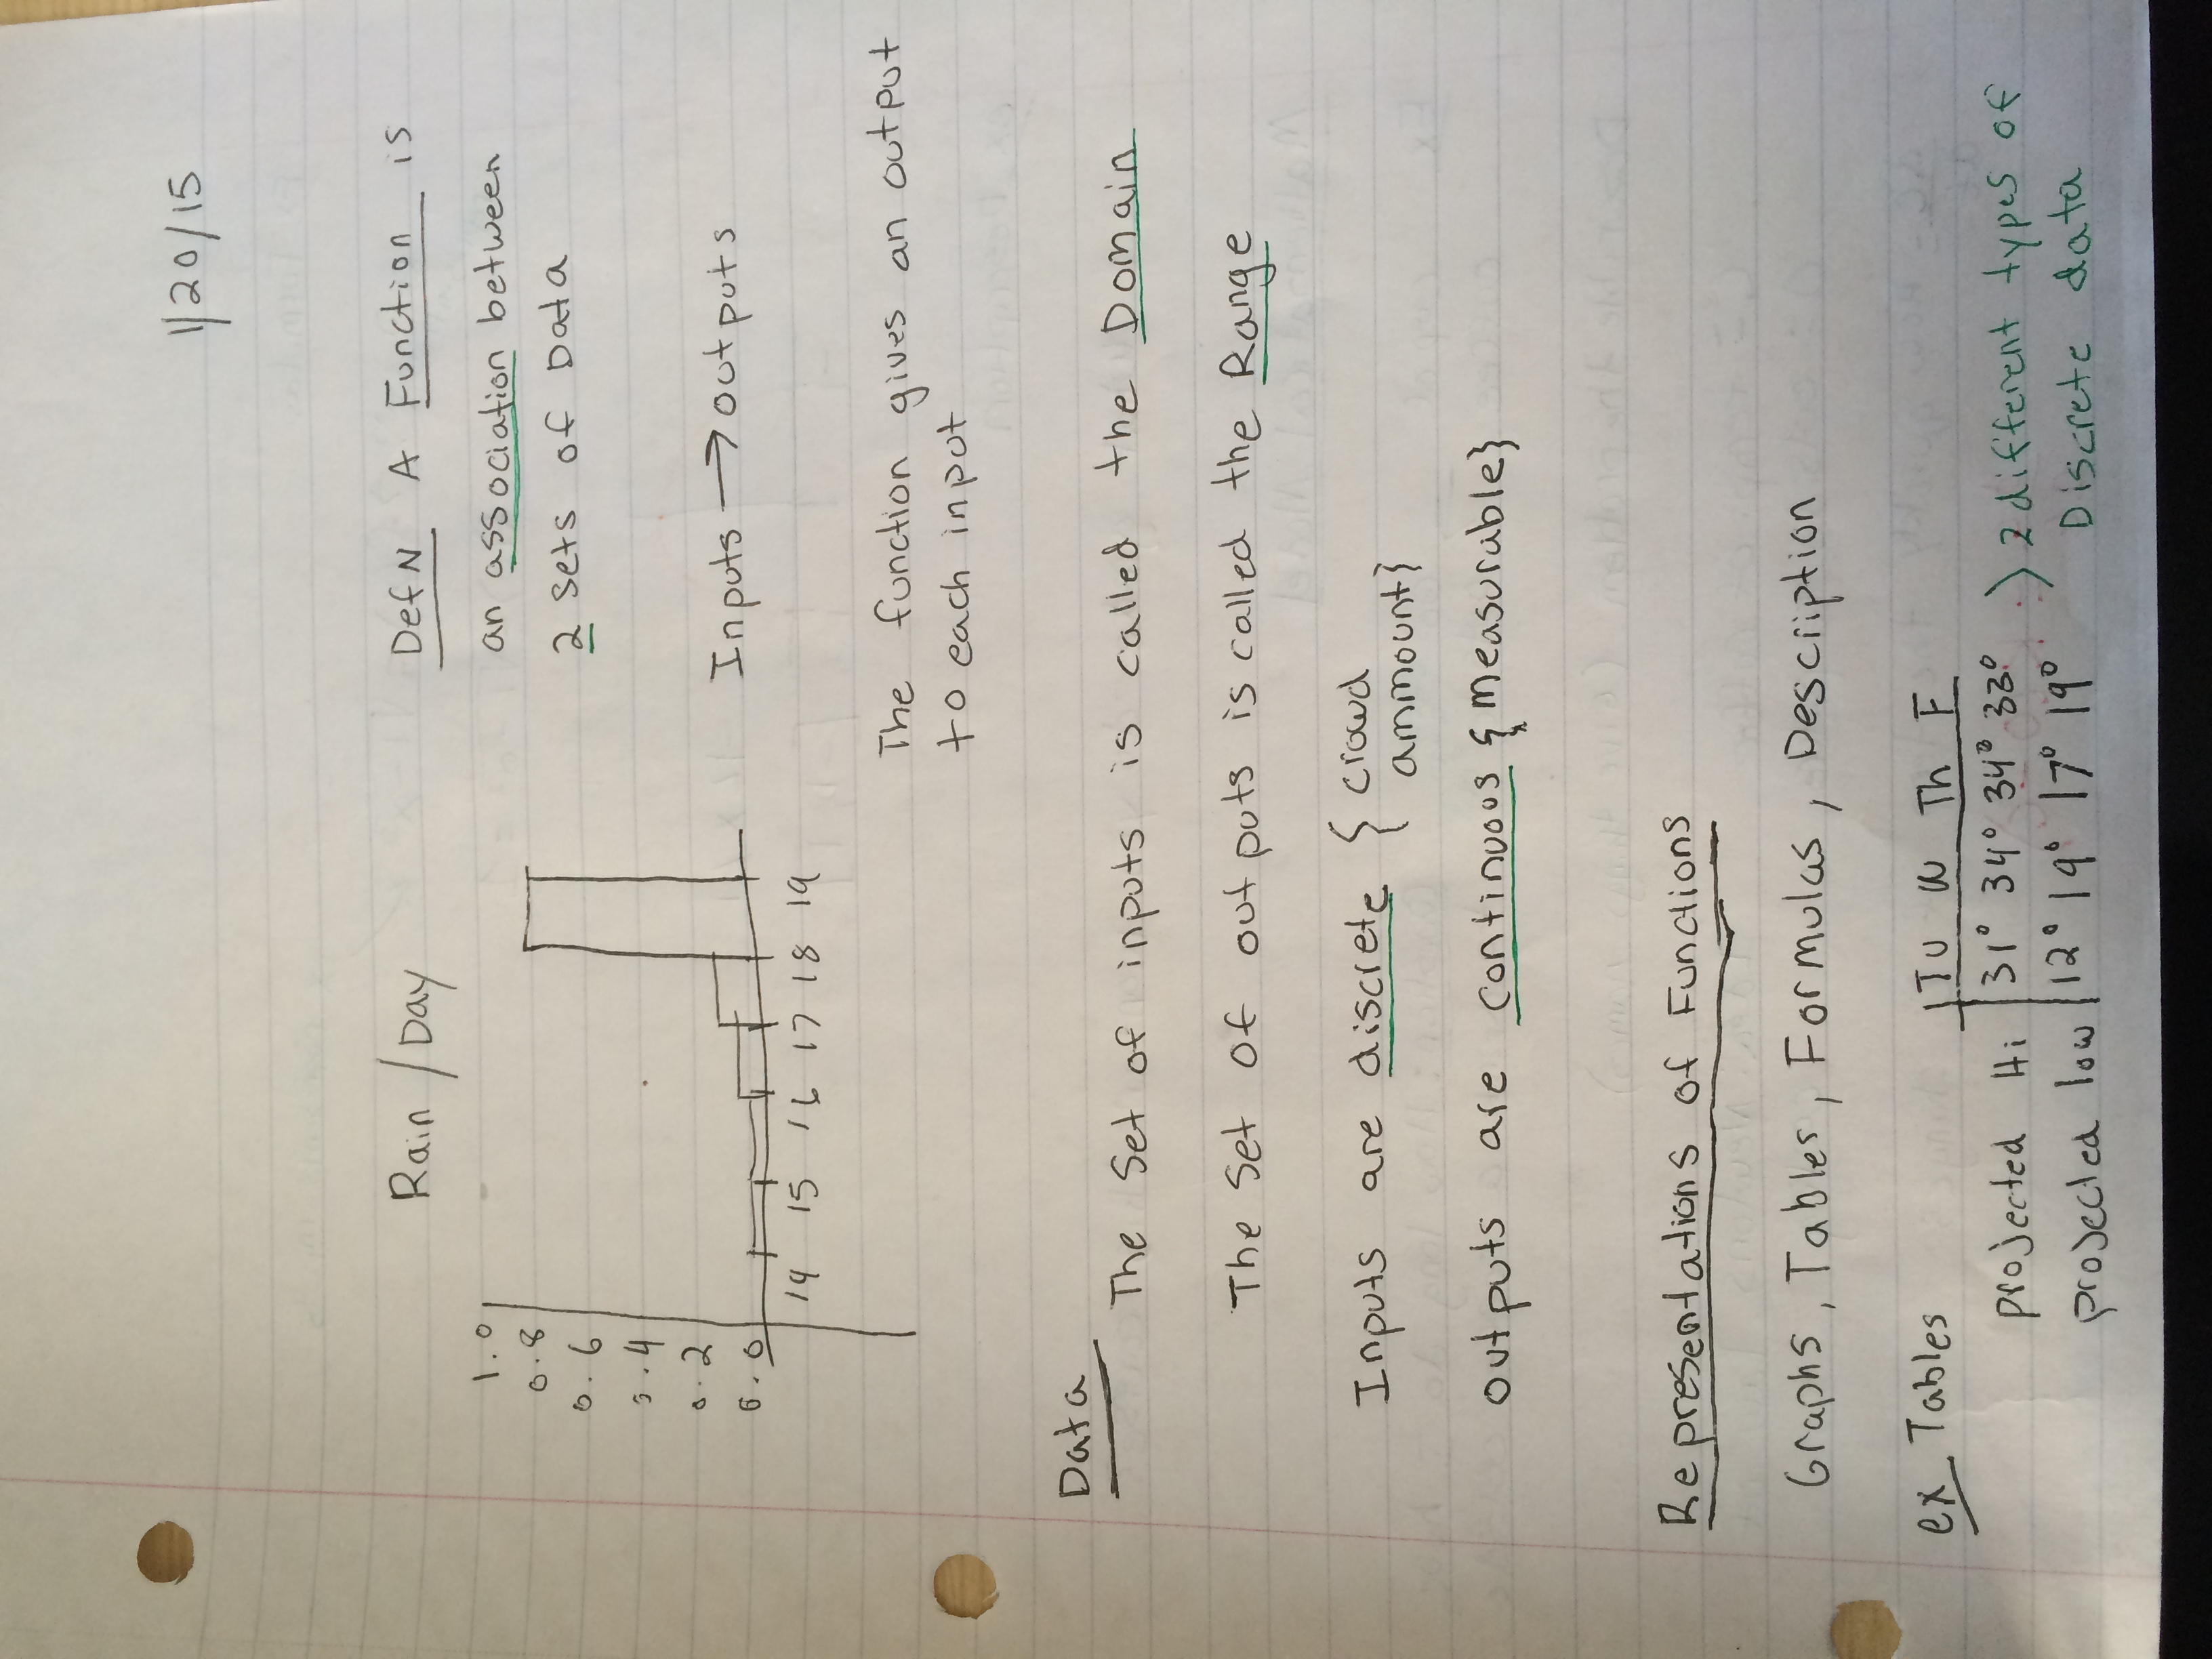 1/20/15
Rain/Day
1.0
0.8
0.6
0.4
0.2
0.0
14 15 16 17 18 19
DefN A Function is
an association between
2 sets of Data
Inputs → outputs
The function gives an output
to each input
Data
The Set of inputs is called the Domain
The Set of outputs is called the Range
Inputs are discrete { crowd
ammount}
outputs are continuous {measurable}
Representations of Functions
Graphs, Tables, Formulas, Description
ex Tables
Tu W Th F
projected Hi 31° 34° 34° 33° > 2 different types of
projected low 12° 19° 17° 19° Discrete data